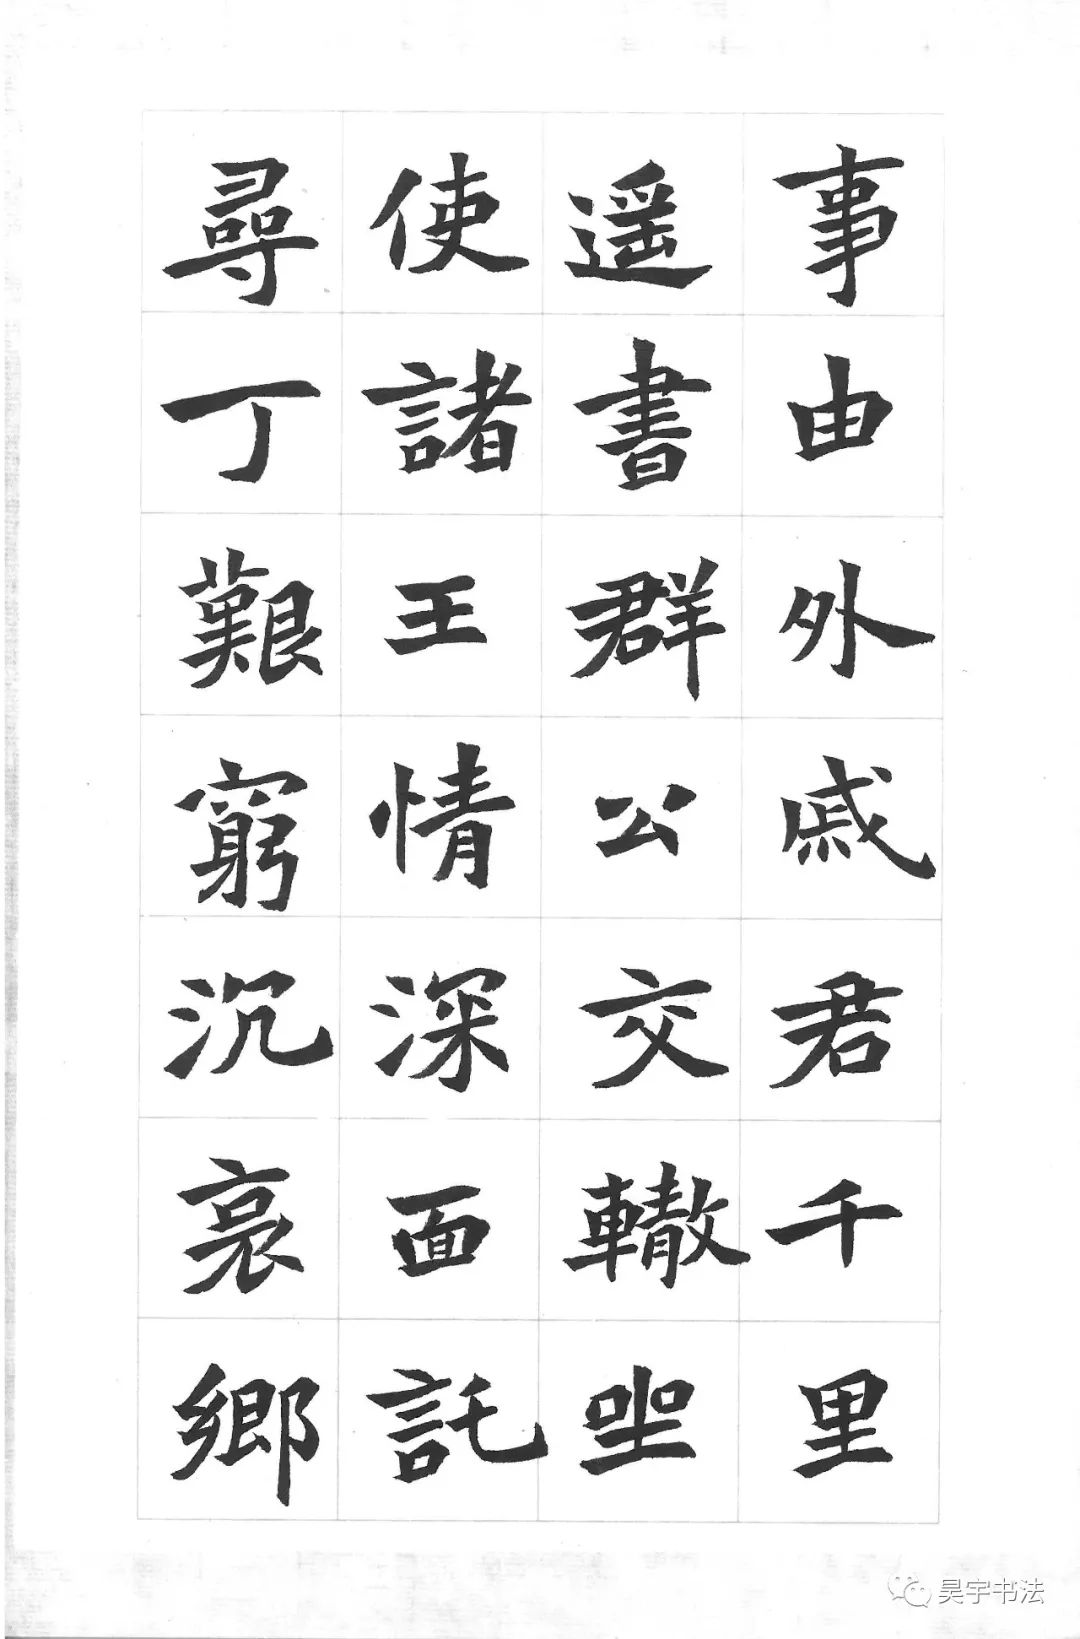 事由外戚君千里
遥書群公交轍坐
使諸王情深面託
尋丁艱窮沉哀鄉
昊宇书法